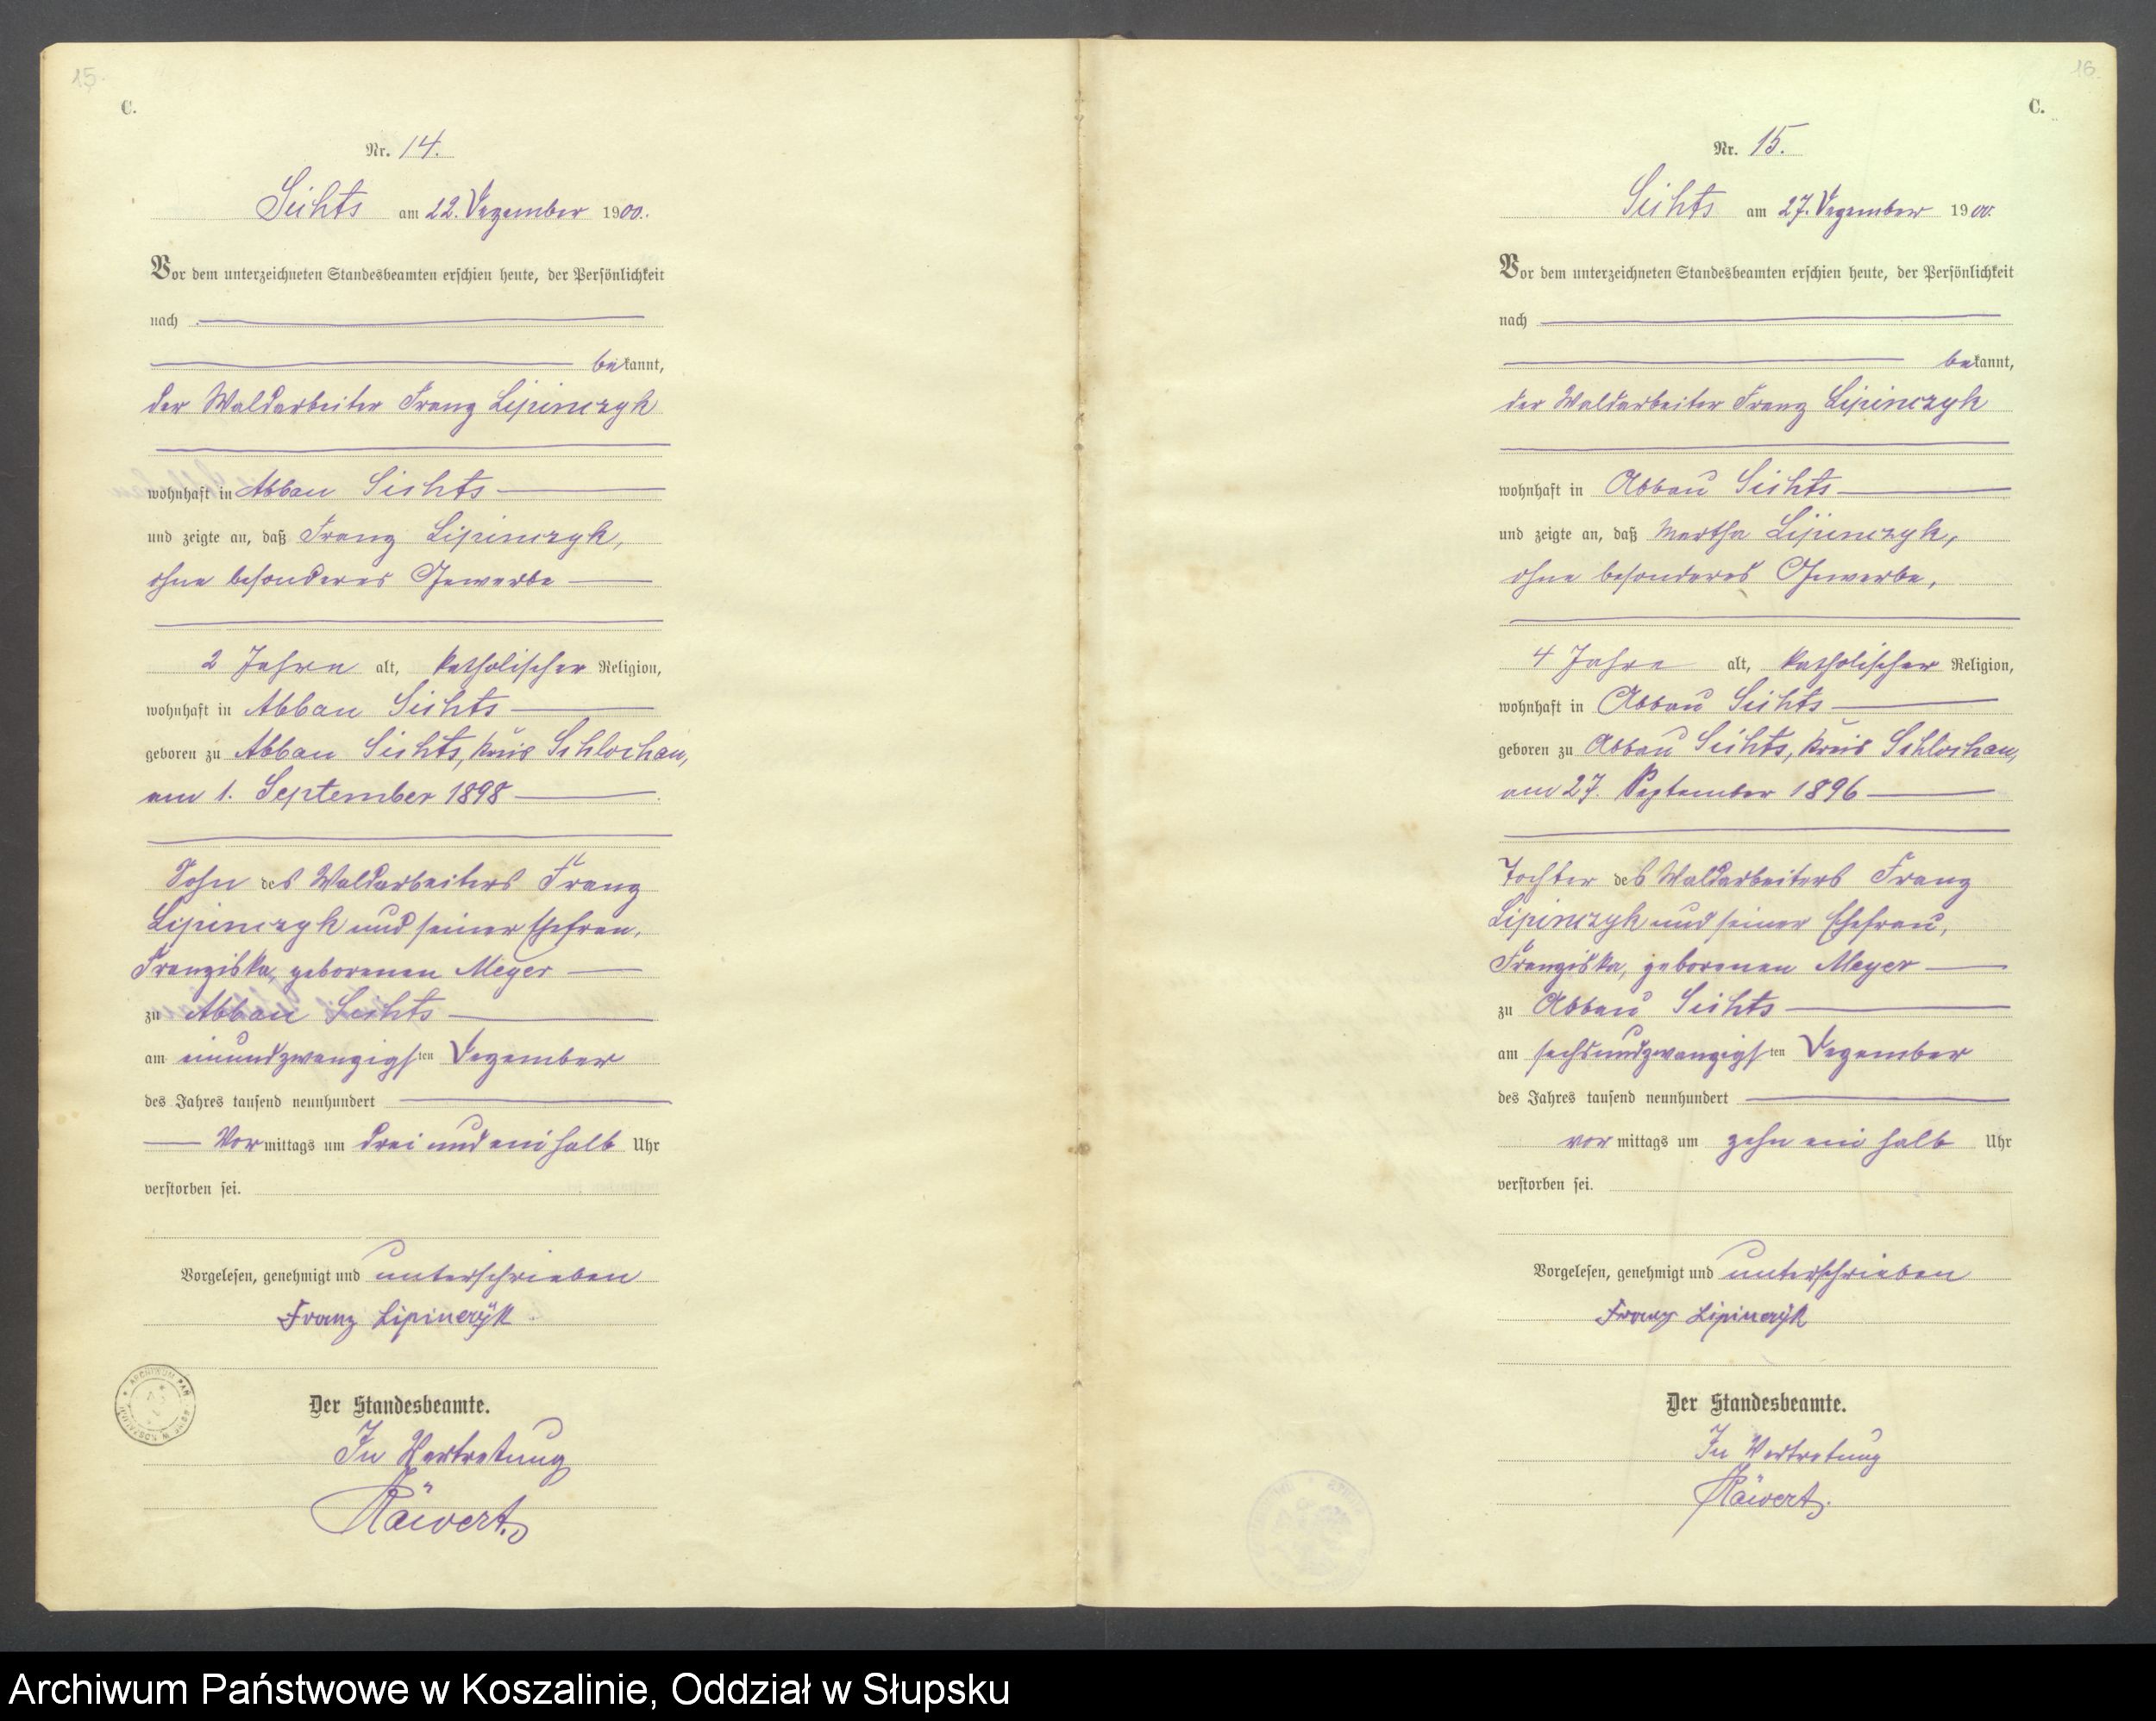 15.
C.
Nr. 14.
Sichts am 22. Dezember 1900.
Vor dem unterzeichneten Standesbeamten erschien heute, der Persönlichkeit
nach
bekannt,
der Waldarbeiter Franz Lipinczyk
wohnhaft in Abbau Sichts
und zeigte an, daß Franz Lipinczyk,
ohne besonderes Gewerbe
2 Jahre alt, katholischer Religion,
wohnhaft in Abbau Sichts
geboren zu Abbau Sichts, Kreis Schlochau,
am 1. September 1898
Sohn des Waldarbeiters Franz
Lipinczyk und seiner Ehefrau,
Franziska, geborenen Meyer
zu Abbau Sichts
am einundzwanzigsten Dezember
des Jahres tausend neunhundert
Vormittags um drei und ein halb Uhr
verstorben sei.
Vorgelesen, genehmigt und unterschrieben
Franz Lipinczÿk
Der Standesbeamte.
In Vertretung
Räwert.
16.
C.
Nr. 15.
Sichts am 27. Dezember 1900.
Vor dem unterzeichneten Standesbeamten erschien heute, der Persönlichkeit
nach
bekannt,
der Waldarbeiter Franz Lipinczyk
wohnhaft in Abbau Sichts
und zeigte an, daß Martha Lipinczyk,
ohne besonderes Gewerbe,
4 Jahre alt, katholischer Religion,
wohnhaft in Abbau Sichts
geboren zu Abbau Sichts, Kreis Schlochau,
am 27. September 1896
Tochter des Waldarbeiters Franz
Lipinczyk und seiner Ehefrau,
Franziska, geborenen Meyer
zu Abbau Sichts
am sechsundzwanzigsten Dezember
des Jahres tausend neunhundert
vormittags um zehn ein halb Uhr
verstorben sei.
Vorgelesen, genehmigt und unterschrieben
Franz Lipinczÿk
Der Standesbeamte.
In Vertretung
Räwert.
Archiwum Państwowe w Koszalinie, Oddział w Słupsku